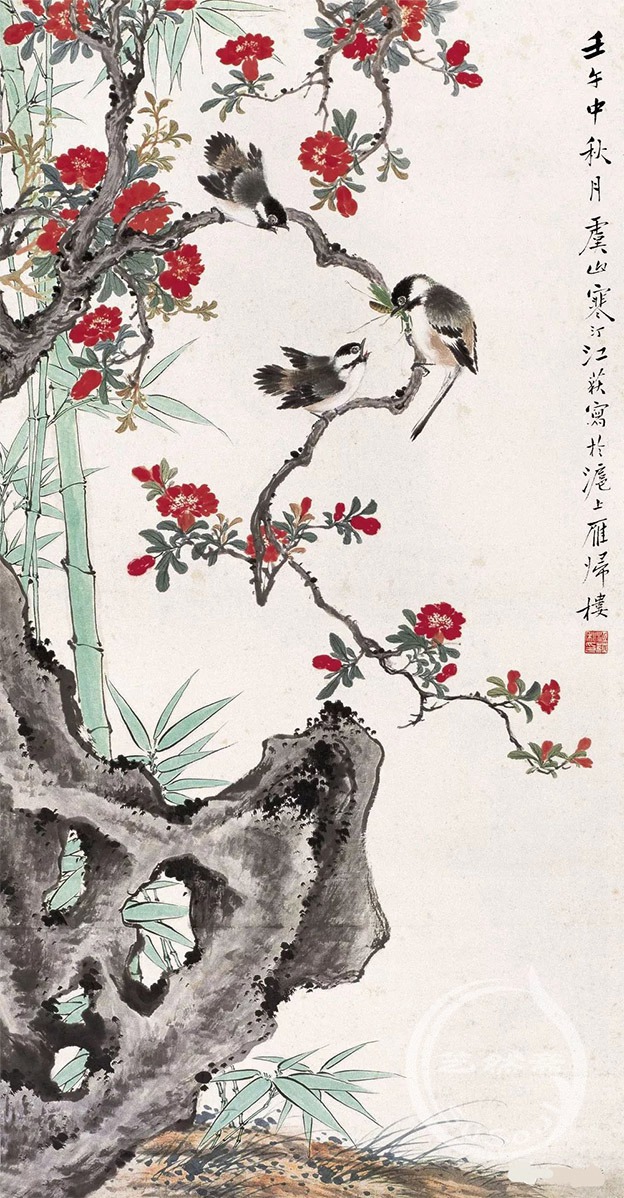 壬午中秋月虞山寒汀江萩寫於滬上雁歸樓